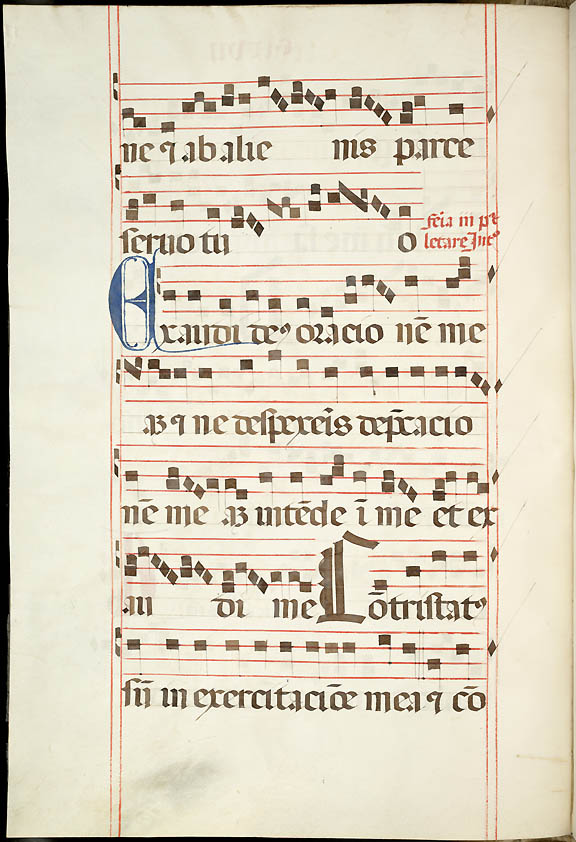 ne ⁊ ab alie nis parce
seruo tu o
fēia iii pꝰ
letare Intꝰ
Exaudi deꝰ oracio nē me
aꝫ ⁊ ne despexeīs dep̄cacio
nē me aꝫ intēde ī me et ex
au di me Cōtristatꝰ
sū in exercitaciōe mea ⁊ cō